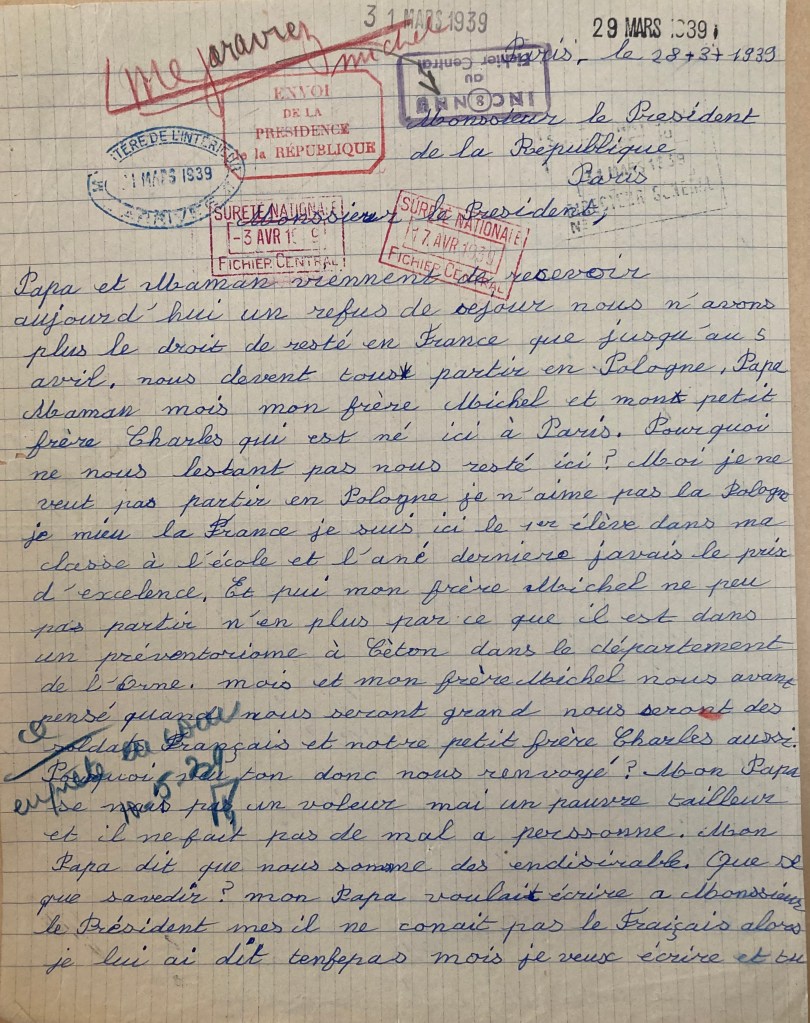 31 MARS 1939
29 MARS 1939
Michel
Paris, le 28+3+1939
ENVOI
DE LA
PRESIDENCE
de la RÉPUBLIQUE
INCONNU
au
Fichier Central
Monsoteur le Président
de la République
Paris
MINISTÈRE DE L'INTÉRIEUR
31 MARS 1939
SURETÉ NATIONALE
-3 AVR 19 9
FICHIER CENTRAL
SURETÉ NATIONALE
17 AVR 1939
FICHIER CENTRAL
Monssieur le President,
Papa et Maman viennent de recevoir
aujourd'hui un refus de sejour nous n'avons
plus le droit de resté en France que jusqu'au 5
avril, nous devent tous partir en Pologne, Papa
Maman mois mon frère Michel et mon petit
frère Charles qui est né ici à Paris. Pourquoi
ne nous lestant pas nous resté ici? Moi je ne
veut pas partir en Pologne je n'aime pas la Pologne
je mieu la France je suis ici le 1er élève dans ma
classe à l'école et l'ané derniere javais le prix
d'excelence. Et pui mon frère Michel ne peu
pas partir n'en plus par ce que il est dans
un préventoriome à Cèton dans le département
de l'Orne. mois et mon frère Michel nous avant
pensé quand nous seront grand nous seront des
soldats Français et notre petit frère Charles aussi.
Pourquoi ton donc nous renvoyé? Mon Papa
pas un voleur mai un pauvre tailleur
et il ne fait pas de mal a perssonne. Mon
Papa dit que nous somme des endisirable. Que se
que savedir? mon Papa voulait écrire a Monssieur
le Président mes il ne conait pas le Fraiçais alors
je lui ai dit tenfepas mois je veux écrire et tu